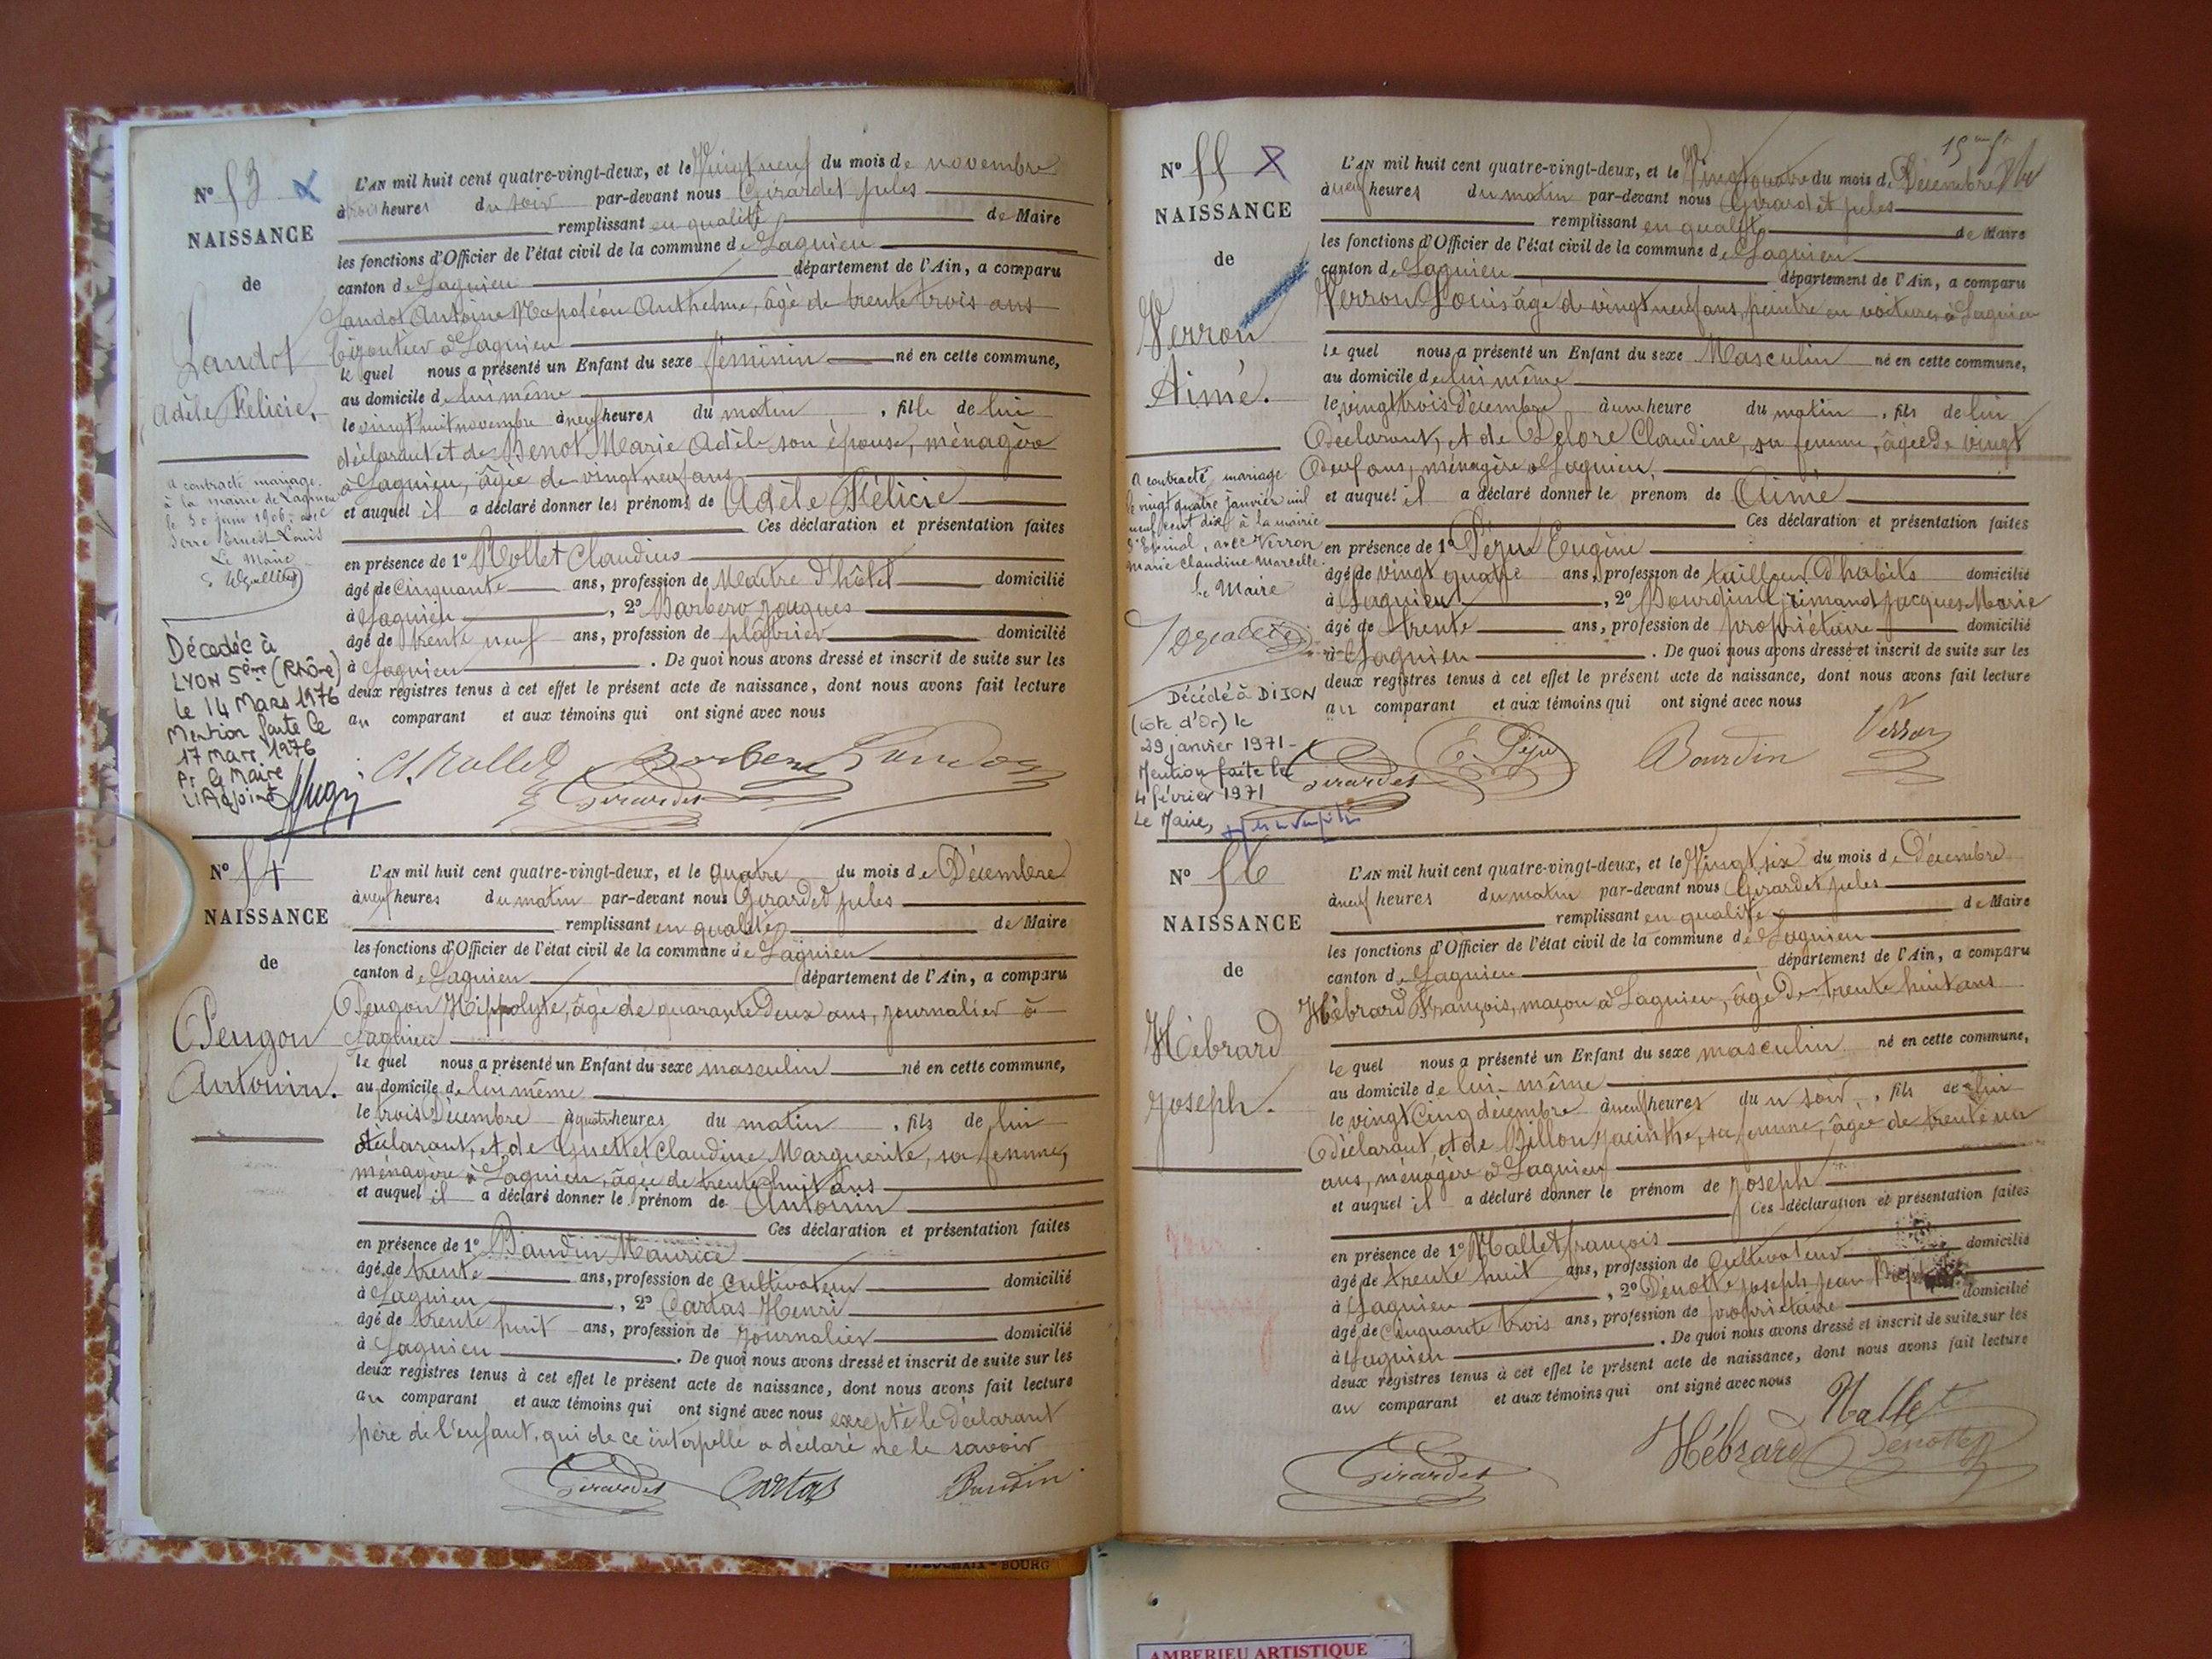 N° 53
NAISSANCE
de
Landot
Adèle Félicie.
a contracté mariage
à la mairie de Lagnieu
le 30 juin 1906, avec
Serre Ernest Louis
Le Maire
Décédée à
LYON 5ème (Rhône)
le 14 Mars 1976
Mention faite le
17 Mars 1976
Pr le Maire
L'Adjoint
L'AN mil huit cent quatre-vingt-deux, et le Vingt neuf du mois de novembre
à trois heures du soir par-devant nous Girardet Jules
remplissant en qualité de Maire
les fonctions d'Officier de l'état civil de la commune de Lagnieu
canton de Lagnieu département de l'Ain, a comparu
Landot Antoine Napoléon Anthelme, âgé de trente trois ans
bijoutier à Lagnieu
le quel nous a présenté un Enfant du sexe féminin né en cette commune,
au domicile de lui même
le vingt huit novembre à neuf heures du matin, fille de lui
déclarant et de Benot Marie Adèle son épouse, ménagère
à Lagnieu, âgée de vingt neuf ans
et auquel il a déclaré donner les prénoms de Adèle Félicie
Ces déclaration et présentation faites
en présence de 1° Rollet Claudius
âgé de Cinquante ans, profession de Maître d'hôtel domicilié
à Lagnieu, 2° Barbero Jacques
âgé de trente neuf ans, profession de plâtrier domicilié
à Lagnieu. De quoi nous avons dressé et inscrit de suite sur les
deux registres tenus à cet effet le présent acte de naissance, dont nous avons fait lecture
au comparant et aux témoins qui ont signé avec nous
Cl. Rollet Barbero Landot
Girardet
N° 54
NAISSANCE
de
Pengon
Antonin.
L'AN mil huit cent quatre-vingt-deux, et le quatre du mois de Décembre
à neuf heures du matin par-devant nous Girardet Jules
remplissant en qualité de Maire
les fonctions d'Officier de l'état civil de la commune de Lagnieu
canton de Lagnieu département de l'Ain, a comparu
Pengon Hippolyte, âgé de quarante deux ans, journalier à
Lagnieu
le quel nous a présenté un Enfant du sexe masculin né en cette commune,
au domicile de lui même
le trois Décembre à quatre heures du matin, fils de lui
déclarant, et de Claudine Marguerite, sa femme,
ménagère à Lagnieu, âgée de trente huit ans
et auquel il a déclaré donner le prénom de Antonin
Ces déclaration et présentation faites
en présence de 1° Baudin Maurice
âgé de trente ans, profession de Cultivateur domicilié
à Lagnieu, 2° Cartas Henri
âgé de trente huit ans, profession de journalier domicilié
à Lagnieu. De quoi nous avons dressé et inscrit de suite sur les
deux registres tenus à cet effet le présent acte de naissance, dont nous avons fait lecture
au comparant et aux témoins qui ont signé avec nous excepté le déclarant
père de l'enfant, qui de ce interpellé a déclaré ne le savoir
Girardet Cartas Baudin
BOURG
N° 55
NAISSANCE
de
Verron
Aimé.
a contracté mariage
le vingt quatre janvier mil
neuf cent dix à la mairie
d'Epinal, avec Verron
Marie Claudine Marcelle.
Le Maire
Décédé à DIJON
(Côte d'Or) le
29 janvier 1971 -
Mention faite le
4 février 1971
Le Maire,
L'AN mil huit cent quatre-vingt-deux, et le Vingt quatre du mois de Décembre
à neuf heures du matin par-devant nous Girardet Jules
remplissant en qualité de Maire
les fonctions d'Officier de l'état civil de la commune de Lagnieu
canton de Lagnieu département de l'Ain, a comparu
Verron Louis âgé de vingt neuf ans, peintre en voitures à Lagnieu
le quel nous a présenté un Enfant du sexe Masculin né en cette commune,
au domicile de lui même
le vingt trois Décembre à une heure du matin, fils de lui
Déclarant, et de Delore Claudine, sa femme, âgée de vingt
neuf ans, ménagère à Lagnieu
et auquel il a déclaré donner le prénom de Aimé
Ces déclaration et présentation faites
en présence de 1° Péju Eugène
âgé de vingt quatre ans, profession de tailleur d'habits domicilié
à Lagnieu, 2° Bourdin Jacques Marie
âgé de trente ans, profession de propriétaire domicilié
à Lagnieu. De quoi nous avons dressé et inscrit de suite sur les
deux registres tenus à cet effet le présent acte de naissance, dont nous avons fait lecture
au comparant et aux témoins qui ont signé avec nous
Girardet E. Péju Bourdin Verron
N° 56
NAISSANCE
de
Hébrard
Joseph.
L'AN mil huit cent quatre-vingt-deux, et le Vingt six du mois de Décembre
à neuf heures du matin par-devant nous Girardet Jules
remplissant en qualité de Maire
les fonctions d'Officier de l'état civil de la commune de Lagnieu
canton de Lagnieu département de l'Ain, a comparu
Hébrard François, maçon à Lagnieu, âgé de trente huit ans
le quel nous a présenté un Enfant du sexe masculin né en cette commune,
au domicile de lui-même
le vingt Cinq décembre à neuf heures du soir, fils de lui
Déclarant, et de Billon Jacinthe, sa femme, âgée de trente un
ans, ménagère à Lagnieu
et auquel il a déclaré donner le prénom de Joseph
Ces déclaration et présentation faites
en présence de 1° Mallet françois
âgé de trente huit ans, profession de Cultivateur domicilié
à Lagnieu, 2° Denotte Joseph Jean
âgé de Cinquante trois ans, profession de propriétaire domicilié
à Lagnieu. De quoi nous avons dressé et inscrit de suite sur les
deux registres tenus à cet effet le présent acte de naissance, dont nous avons fait lecture
au comparant et aux témoins qui ont signé avec nous
Mallet
Girardet Hébrard Denotte
AMBERIEU ARTISTIQUE